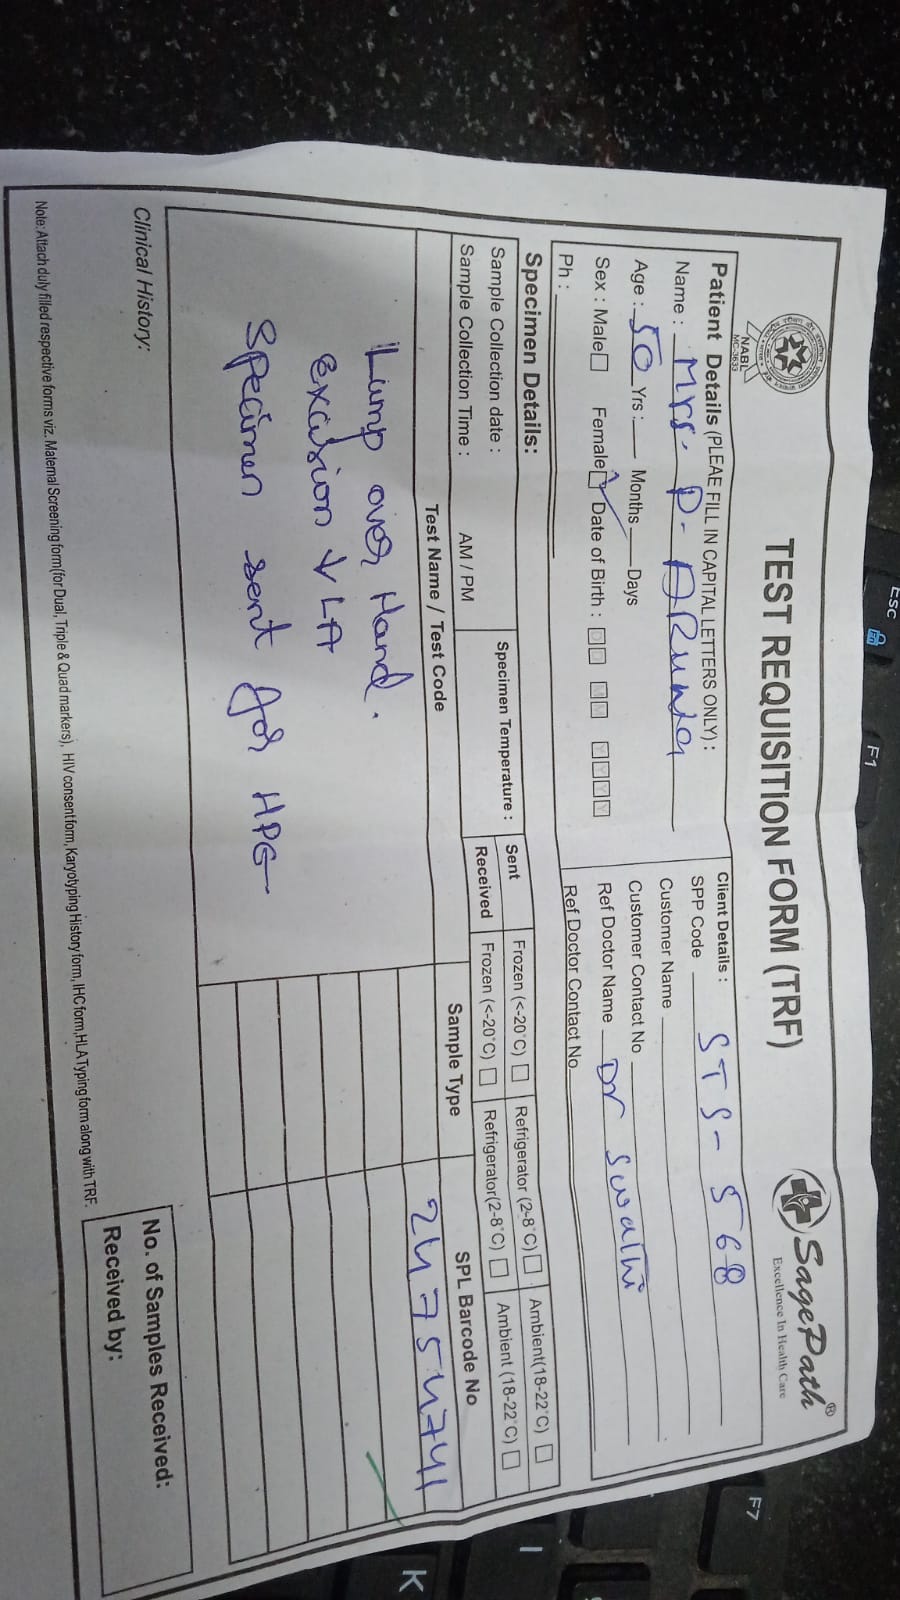 TEST REQUISITION FORM (TRF)
NABL
MC-3633
SagePath®
Excellence In Health Care
Patient Details (PLEAE FILL IN CAPITAL LETTERS ONLY) :
Name : Mrs. D. ARuna
Age : 50 Yrs : Months Days
Sex : Male Female Date of Birth : D D M M Y Y Y Y
Ph :
Client Details :
SPP Code STS- 568
Customer Name
Customer Contact No
Ref Doctor Name Dr Swathi
Ref Doctor Contact No
Specimen Details:
Sample Collection date :
Sample Collection Time : AM / PM
Specimen Temperature :
Sent Frozen (<-20°C) Refrigerator (2-8°C) Ambient(18-22°C)
Received Frozen (<-20°C) Refrigerator(2-8°C) Ambient (18-22°C)
Test Name / Test Code Sample Type SPL Barcode No
24754741
Lump over Hand.
excision ↓ LA
Specimen sent for HPE
Clinical History:
No. of Samples Received:
Received by:
Note: Attach duly filled respective forms viz. Maternal Screening form(for Dual, Triple & Quad markers), HIV consent form, Karyotyping History form, IHC form,HLA Typing form along with TRF.
Esc
Fn
F1
F7
I
K